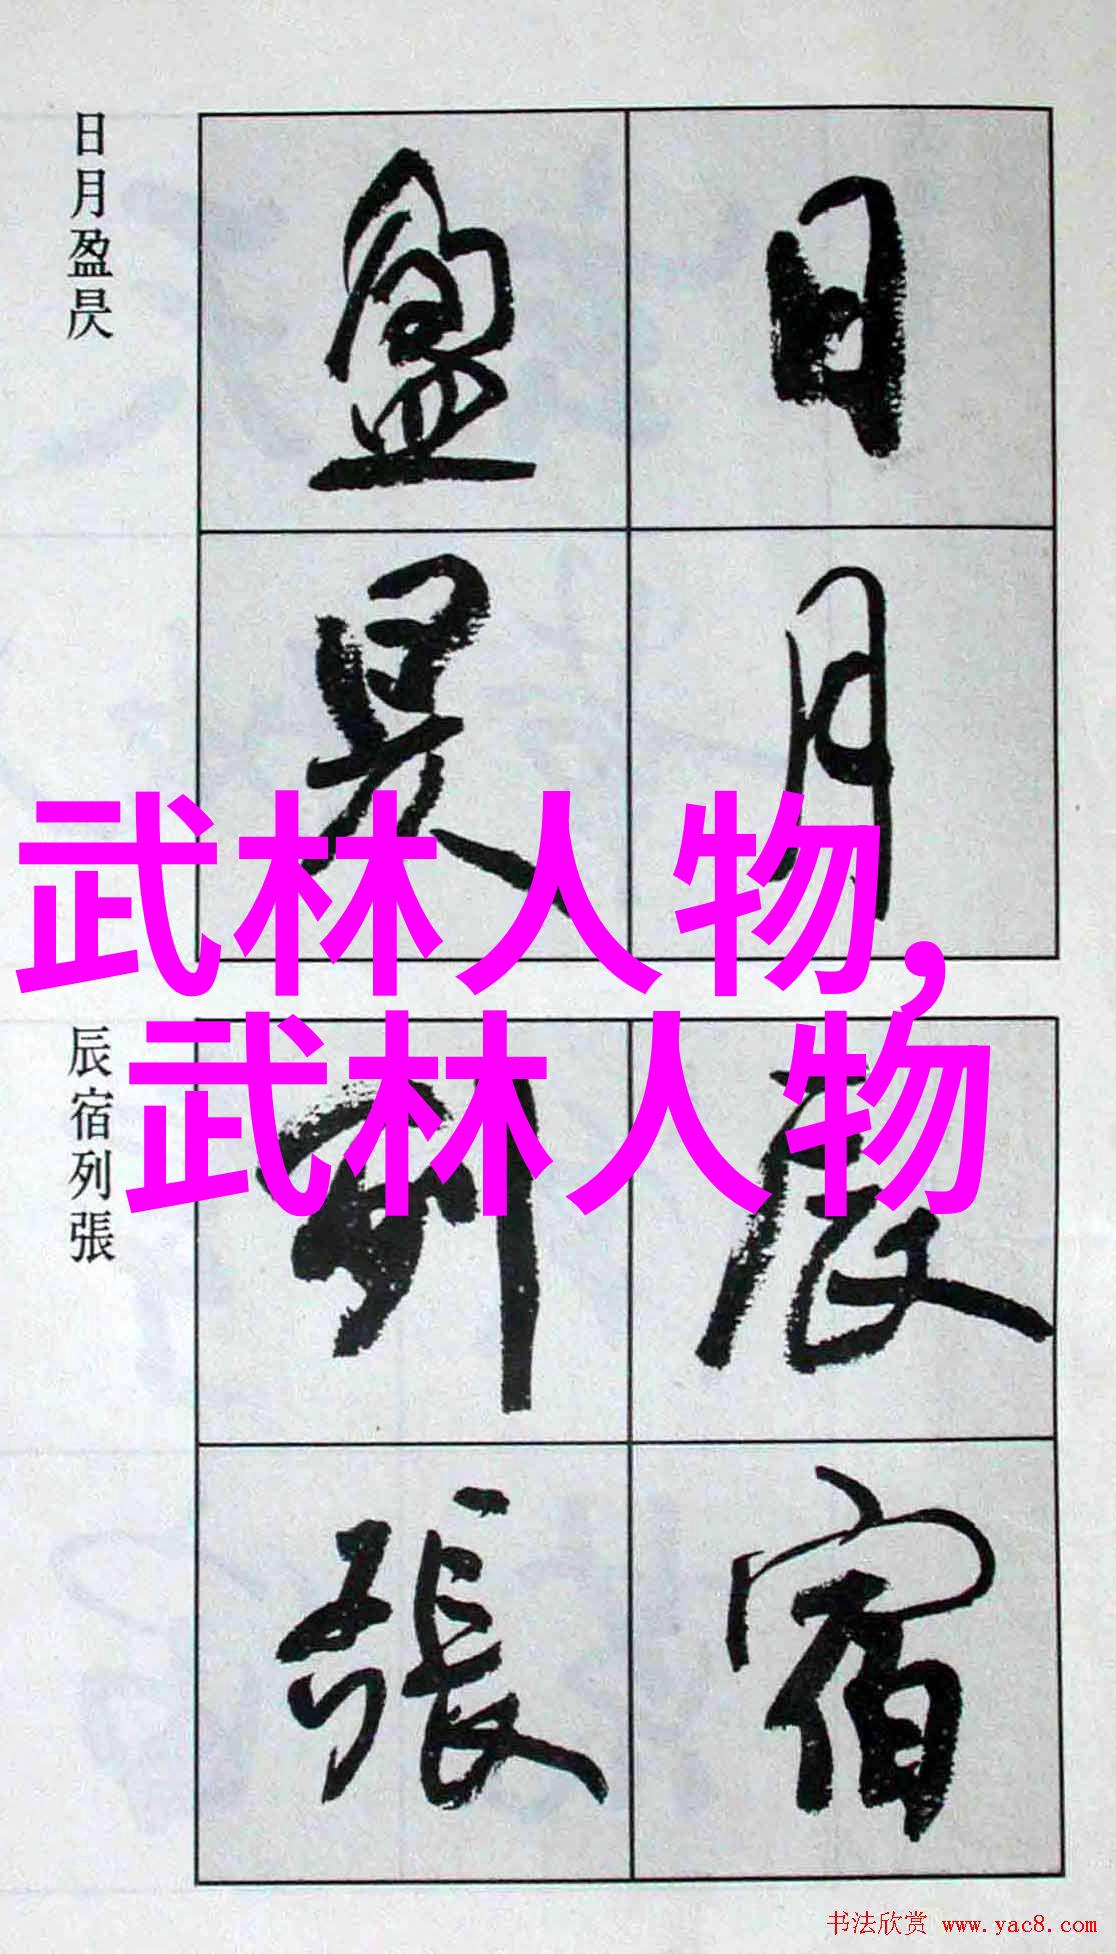 日月盈昃
日月
盈昃
武林人物,
武林人物
辰宿列張
辰宿
列張
书法欣赏 www.yac8.com